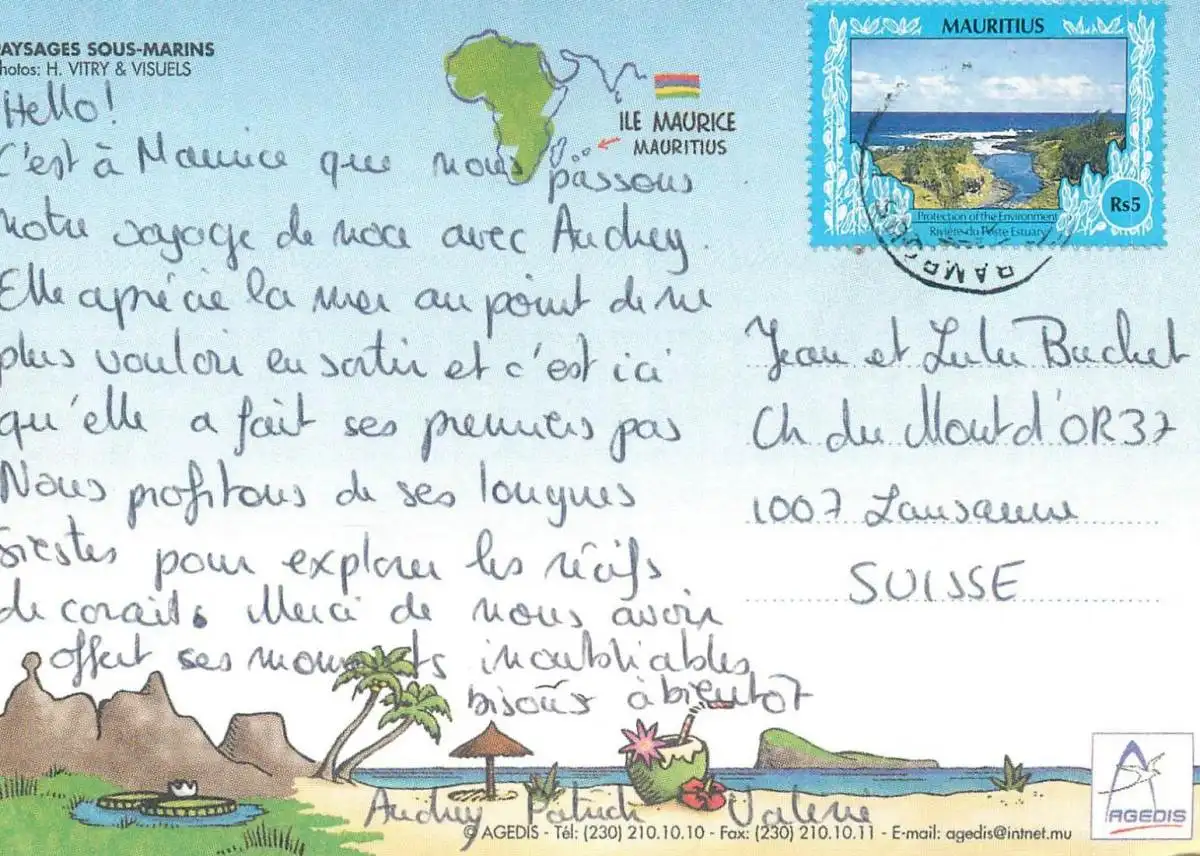 PAYSAGES SOUS-MARINS
Photos: H. VITRY & VISUELS
ILE MAURICE
MAURITIUS
MAURITIUS
Rs5
Protection of the Environment
Rivière du Poste Estuary
Hello!
C'est à Maurice que nous passons
notre voyage de noce avec Audrey.
Elle aprécie la mer au point de ne
plus vouloir en sortir et c'est ici
qu'elle a fait ses premiers pas
Nous profitons de ses longues
siestes pour explorer les récifs
de corails. Merci de nous avoir
offert ses moments inoubliables
bisous à bientôt
Audrey Patrick Valerie
Jean et Lulu Buchet
Ch du Mont d'OR 37
1007 Lausanne
SUISSE
© AGEDIS - Tél: (230) 210.10.10 - Fax: (230) 210.10.11 - E-mail: agedis@intnet.mu
AGEDIS